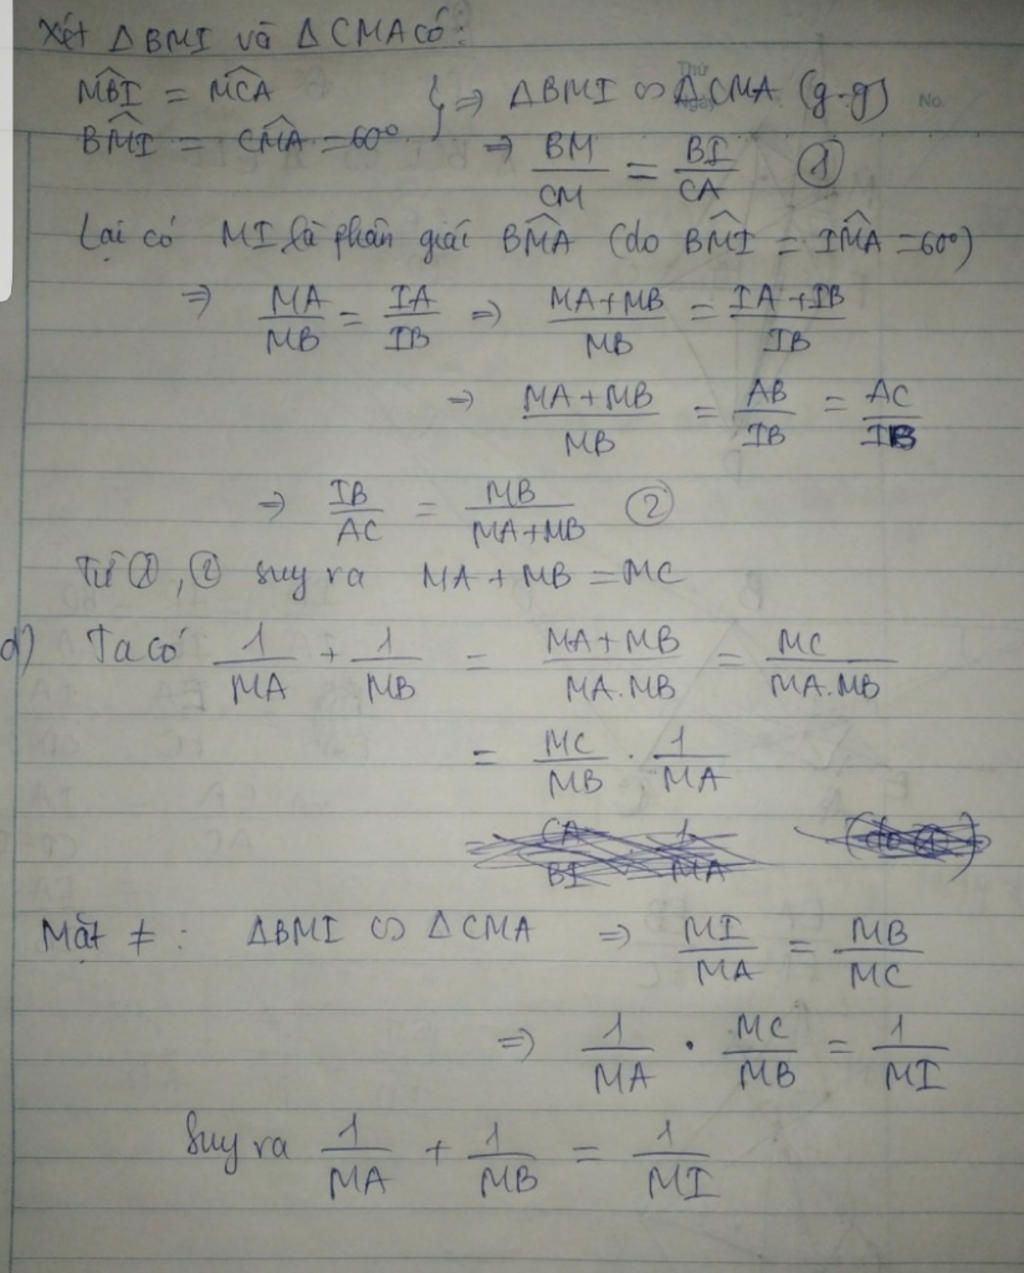 Xét ΔBMI và ΔCMA có:
M̂BI = M̂CA } ⇒ ΔBMI ∽ ΔCMA (g-g)
BM̂I = CM̂A = 60° ⇒ BM/CM = BI/CA ①
Lại có MI là phân giác BM̂A (do BM̂I = IM̂A = 60°)
⇒ MA/MB = IA/IB ⇒ (MA+MB)/MB = (IA+IB)/IB
⇒ (MA+MB)/MB = AB/IB = AC/IB
⇒ IB/AC = MB/(MA+MB) ②
Từ ①, ② suy ra MA + MB = MC
d) Ta có 1/MA + 1/MB = (MA+MB)/(MA.MB) = MC/(MA.MB)
= MC/MB . 1/MA
Mặt ≠ : ΔBMI ∽ ΔCMA ⇒ MI/MA = MB/MC
⇒ 1/MA . MC/MB = 1/MI
Suy ra 1/MA + 1/MB = 1/MI